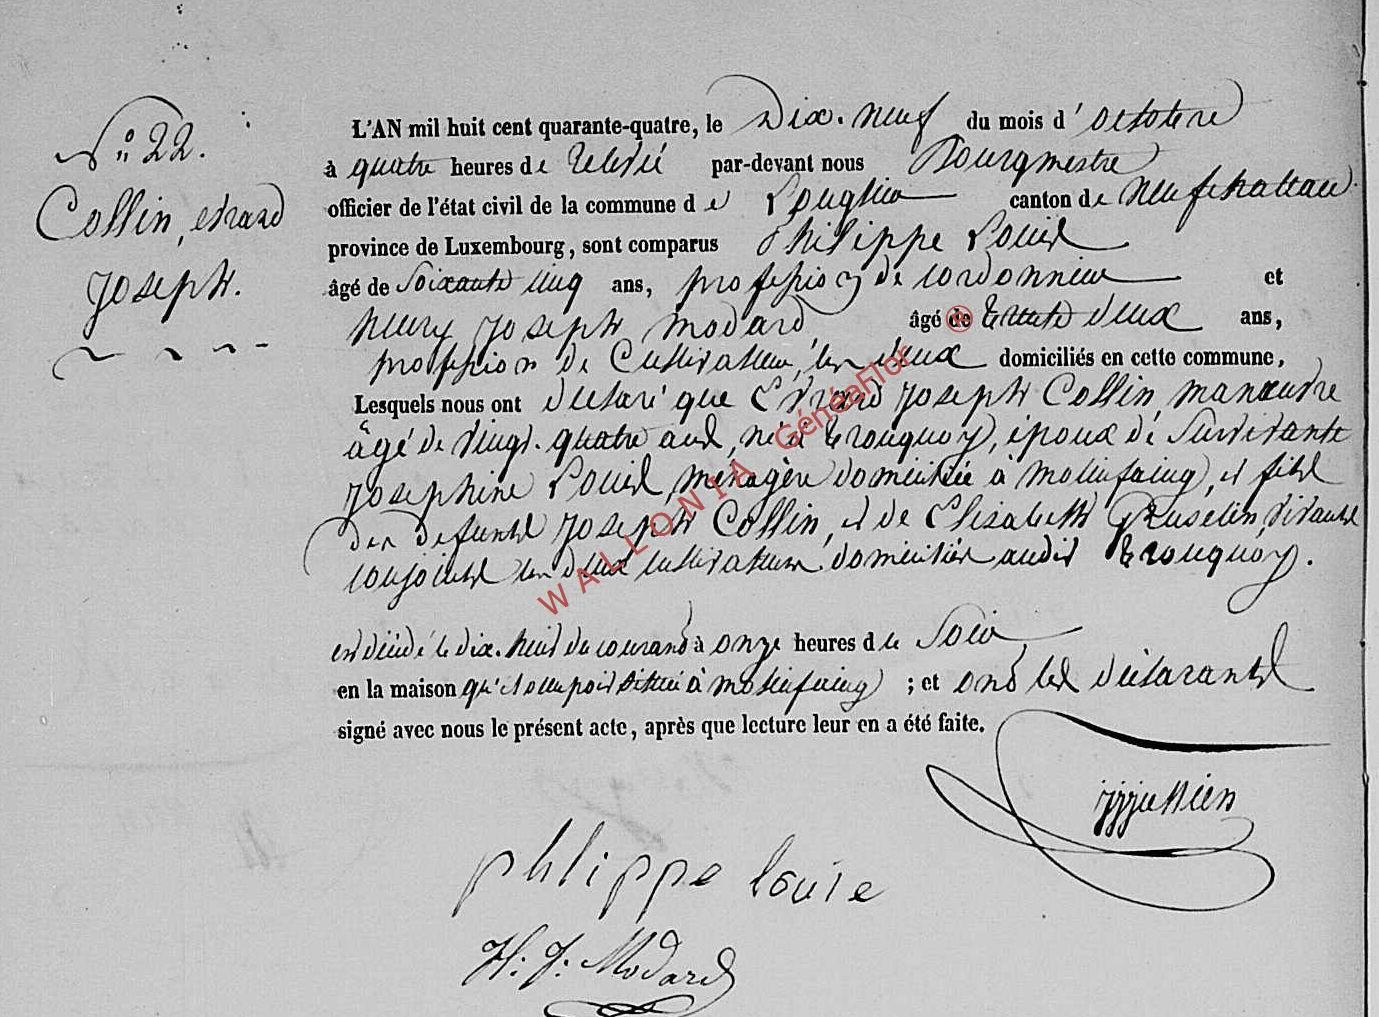 N° 22.
Collin, evrard
Joseph.
L'AN mil huit cent quarante-quatre, le Dix-neuf du mois d'octobre
à quatre heures de relevée par-devant nous Bourgmestre
officier de l'état civil de la commune de Longlier canton de Neufchateau
province de Luxembourg, sont comparus Philippe Louis
âgé de Soixante cinq ans, profession de cordonnier et
henry Joseph Modard âgé de trente deux ans,
profession de Cultivateur, les deux domiciliés en cette commune,
Lesquels nous ont déclaré que Evrard Joseph Collin, manœuvre
âgé de vingt-quatre ans, né à tronquoy, époux de Survivante
Josephine Louis, ménagère domiciliée à molinfaing, et fils
des défunts Joseph Collin, et de Elisabeth vivants
conjoints les deux cultivateurs domiciliés audit tronquoy.
est décédé le dix-huit du courant à onze heures du Soir
en la maison qu'il occupoit située à molinfaing ; et ont les déclarants
signé avec nous le présent acte, après que lecture leur en a été faite.
philippe louise
H. J. Modard
WALLONIA GénéaFlor